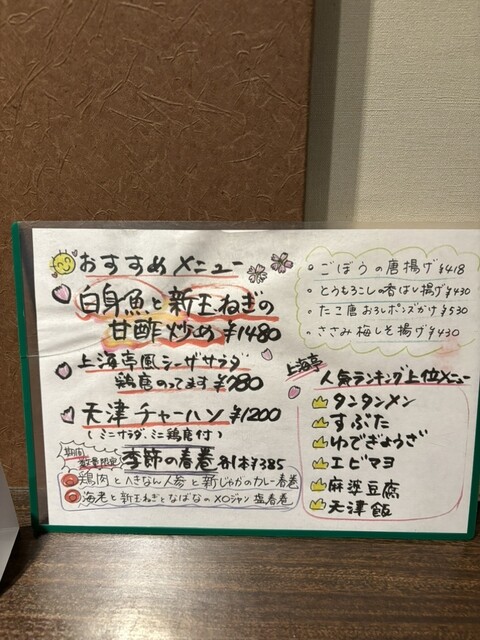 おすすめメニュー
白身魚と新玉ねぎの
甘酢炒め ¥1480
上海亭風シーザーサラダ
鶏唐のってます ¥780
天津チャーハン ¥1200
(ミニサラダ、ミニ鶏唐付)
期間
数量限定
季節の春巻 各1本¥385
鶏肉とへきなん人参と新じゃがのカレー春巻
海老と新玉ねぎとなばなのXOジャン塩春巻
。ごぼうの唐揚げ ¥418
。とうもろこしの香ばし揚げ ¥430
・たこ唐おろしポンズがけ ¥530
。ささみ梅しそ揚げ ¥430
上海亭
人気ランキング上位メニュー
タンタンメン
すぶた
ゆでぎょうざ
エビマヨ
麻婆豆腐
天津飯